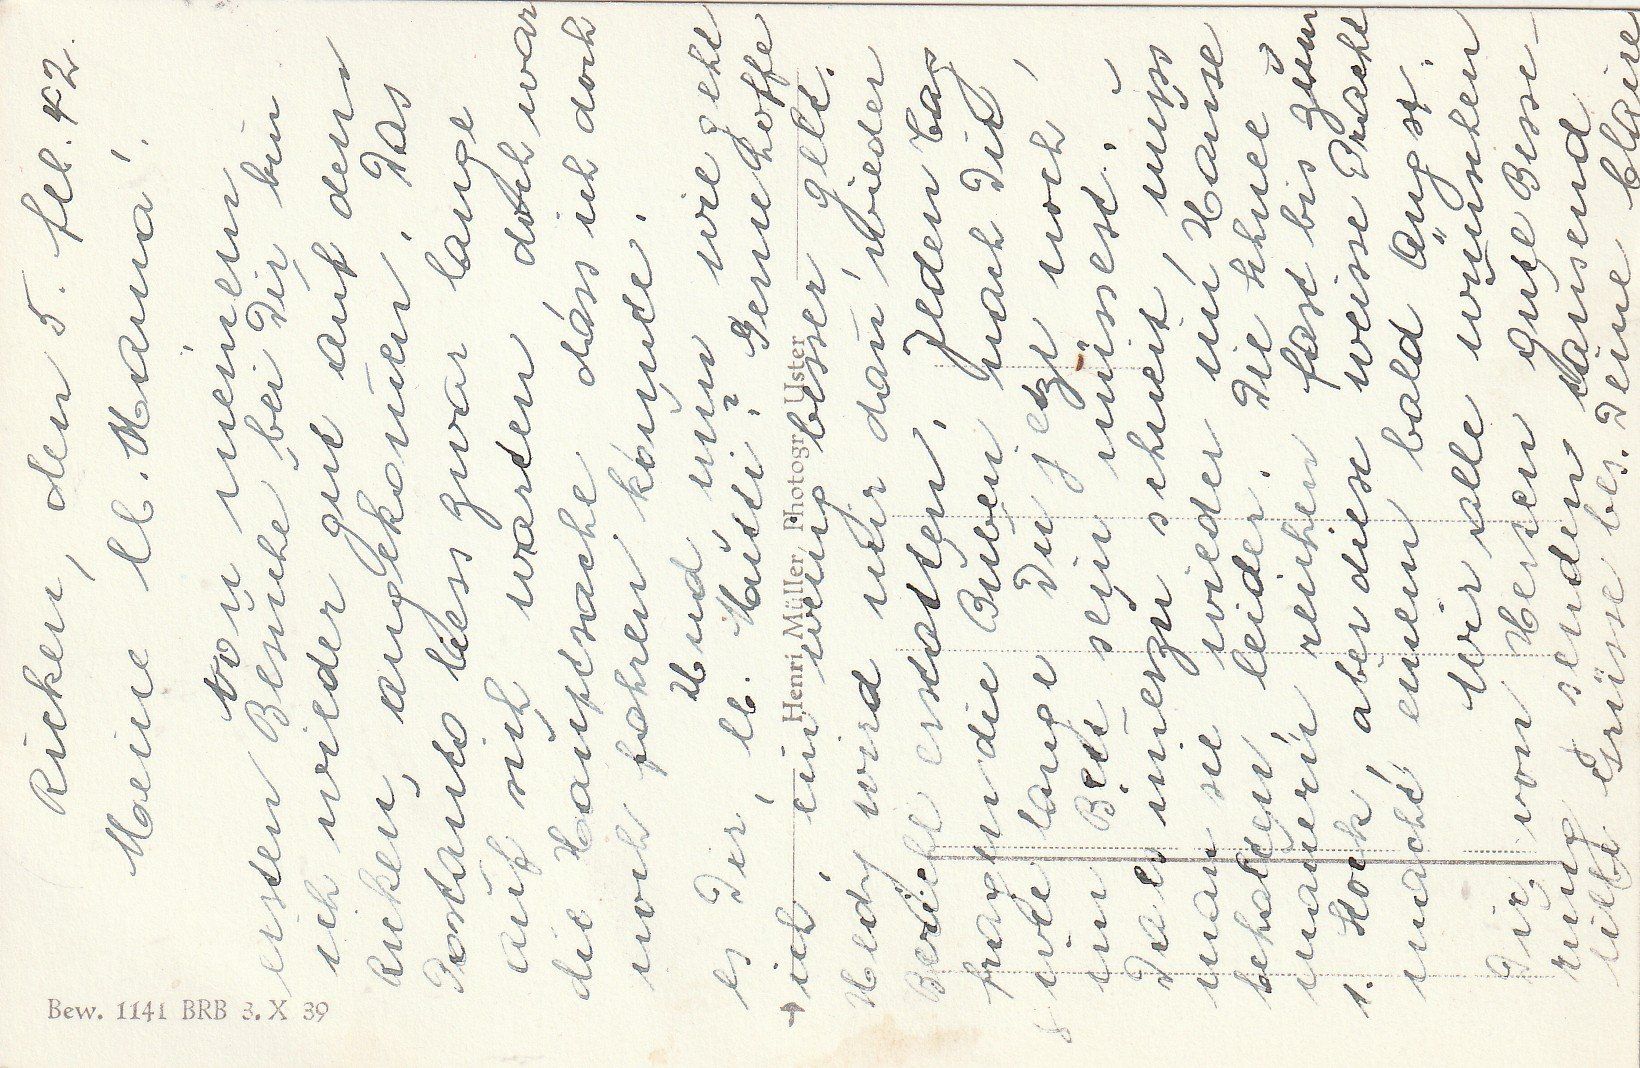 Ricken, den 5. Feb. 42.
Meine lb. Mamma!
Von meinem
ersten Besuche bei Dir bin
ich wieder gut auf dem
Ricken angekommen. Das
Postauto liess zwar lange
auf sich warten doch war
die Hauptsache dass ich doch
noch fahren konnte.
Und nun wie geht
es Dir, lb. Mutti? Gerne hoffe
ich, ein wenig besser, gelt.
Hedy wird mir dann wieder
Bericht erstatten. Jeden Tag
fragen die Buben nach Dir,
wie lange Du jetzt noch
im Bett sein müssest.
Da es immerzu schneit, muss
man sie wieder im Hause
behalten, leider. Die Schnee-
mauern reichen fast bis zum
1. Stock, aber diese weisse Pracht
macht einem bald Angst.
Wir alle wünschen
Dir von Herzen gute Besse-
rung & senden tausend
liebe Grüsse bes. Deine Claire
Henri Müller, Photogr. Uster
Bew. 1141 BRB 3. X 39